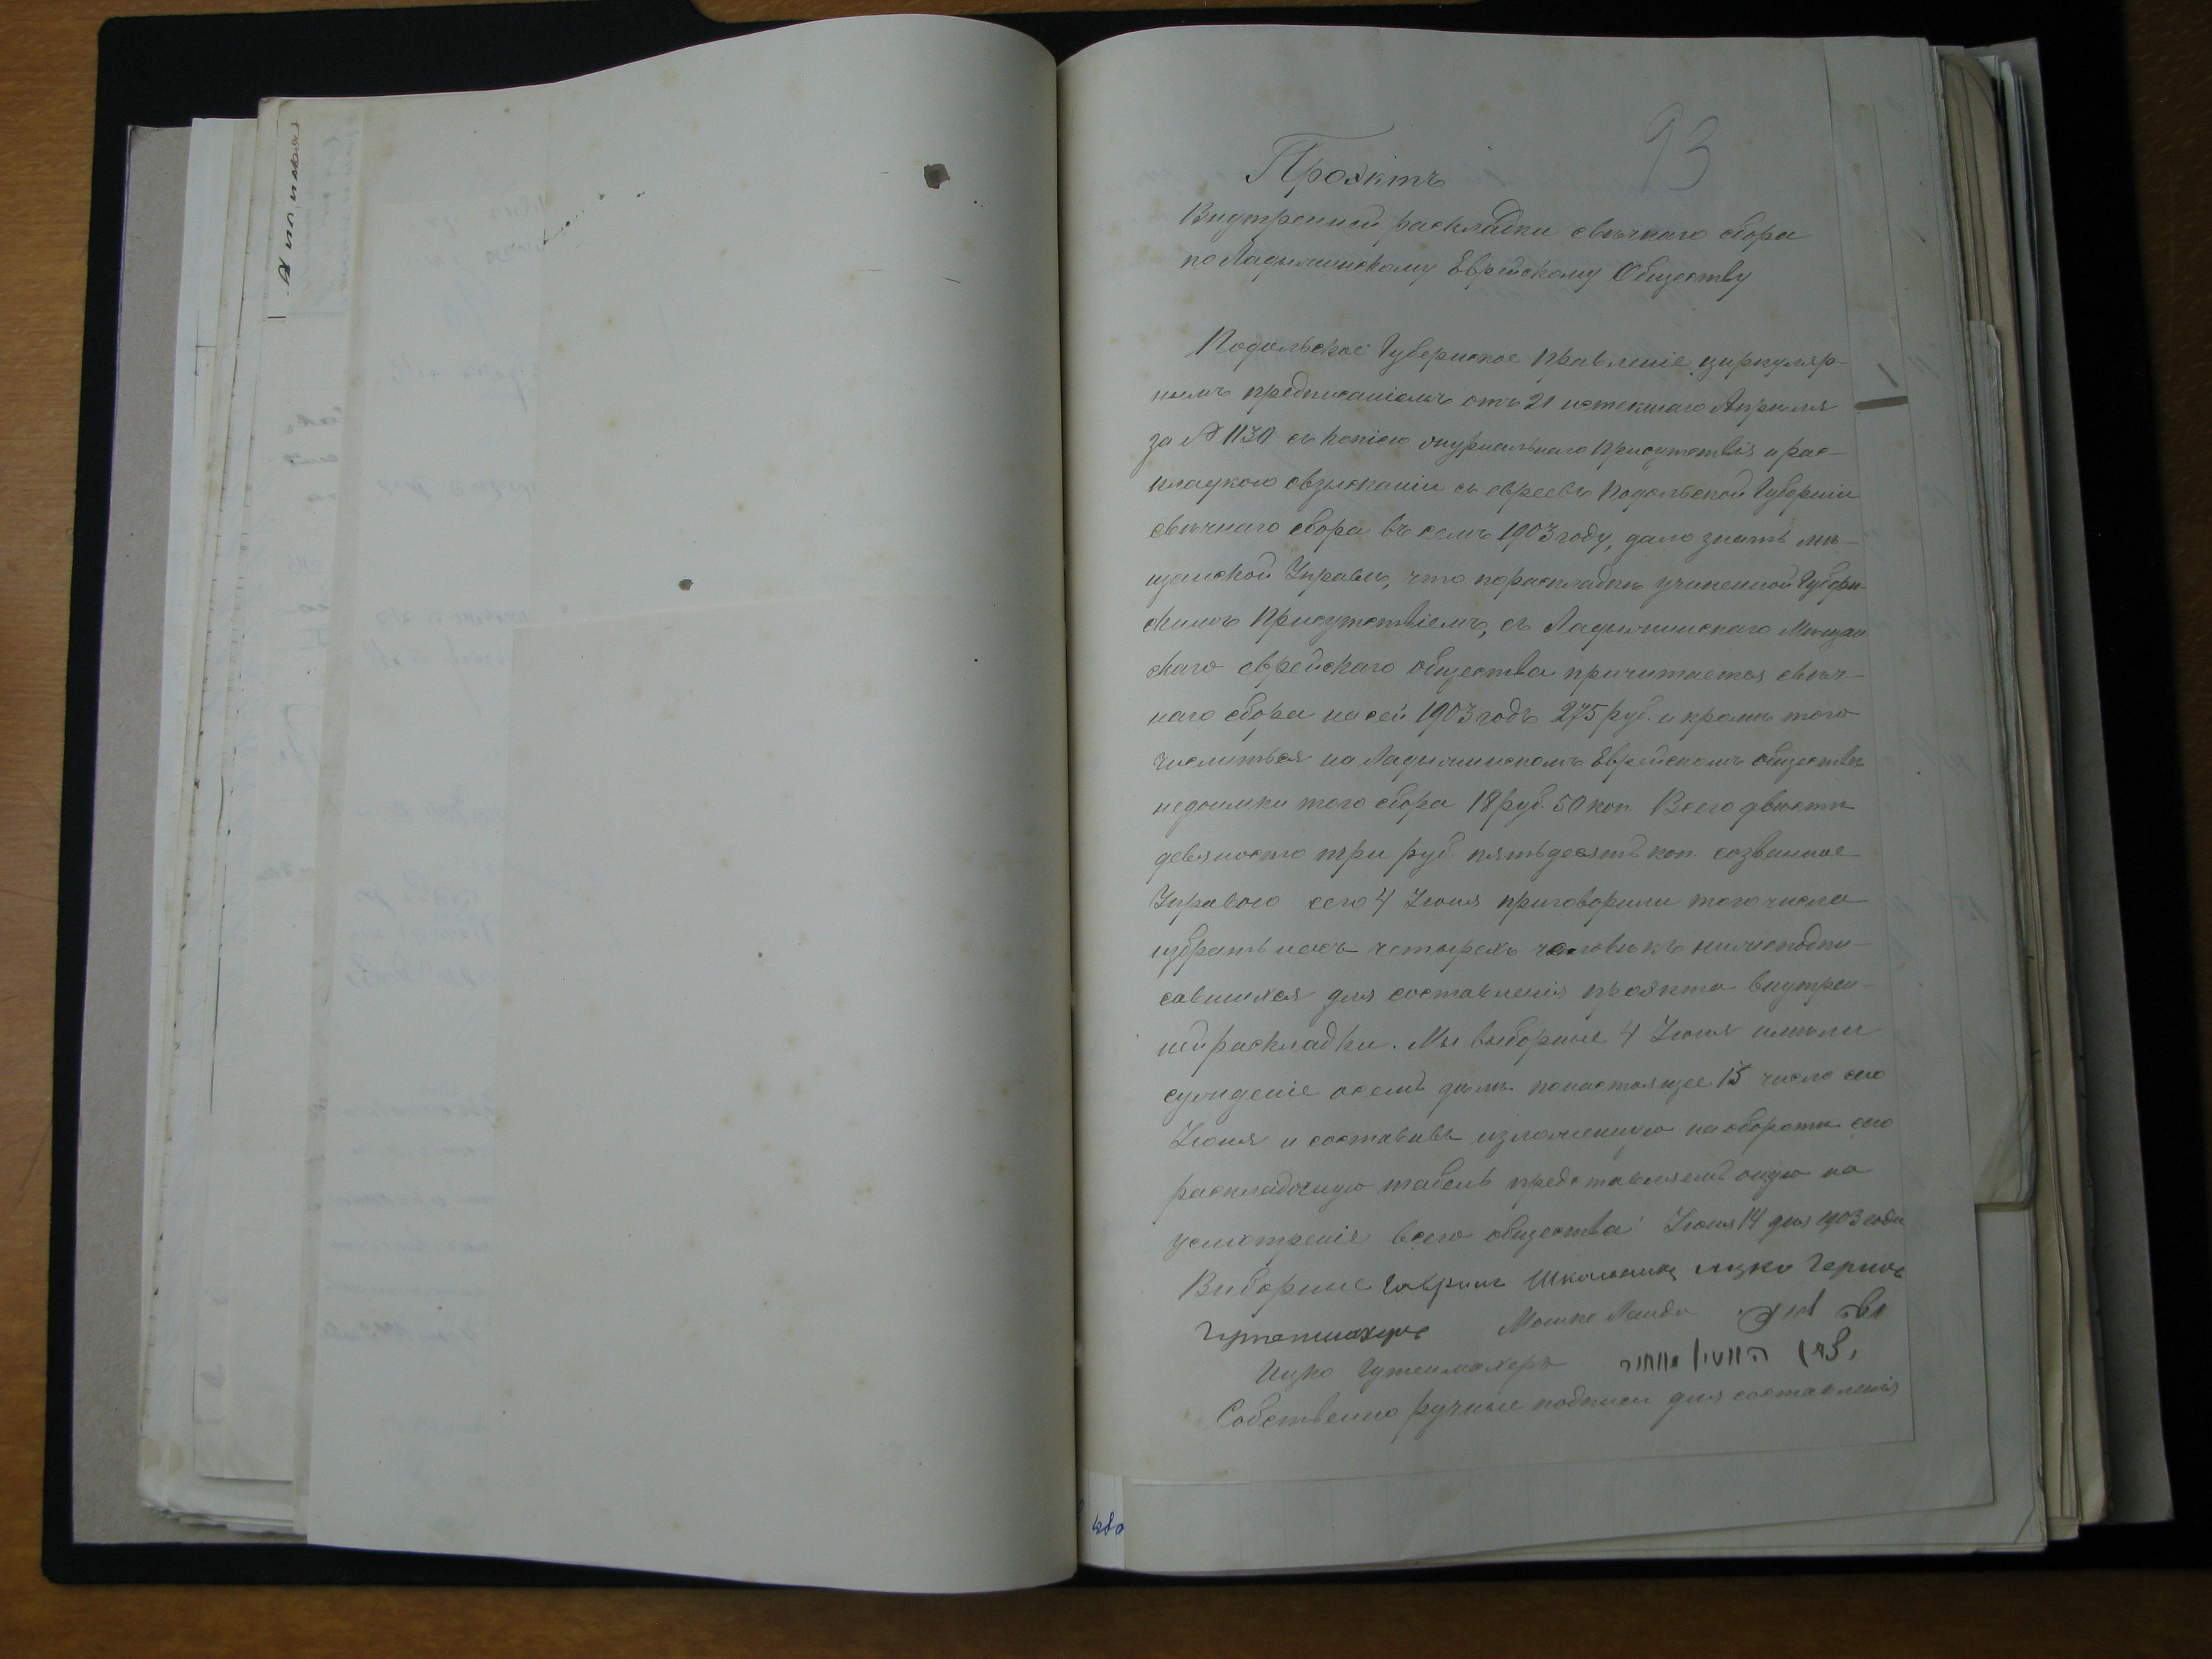 93
Проэктъ
Внутренней раскладки свѣчнаго сбора
по Ладыжинскому Еврейскому Обществу
Подольское Губернское Правленіе циркуляр-
нымъ предписаніемъ отъ 21 истекшаго Апрѣля
за № 1130 съ копіею журнальнаго Присутствія и рас-
кладкою о взысканіи съ евреевъ Подольской Губерніи
свѣчнаго сбора въ семъ 1903 году, дало знать мѣ-
щанской Управѣ, что по раскладкѣ учиненной Губерн-
скимъ Присутствіемъ, съ Ладыжинскаго Мѣщан
скаго еврейскаго общества причитается свѣч-
наго сбора на сей 1903 годъ 275 руб. и кромѣ того
числиться на Ладыжинскомъ Еврейскомъ обществѣ
недоимки того сбора 18 руб. 50 коп. Всего двѣсти
девяносто три руб. пятьдесятъ коп. созванное
Управою сего 4 Іюня приговорили того числа
избрать насъ четырехъ человѣкъ нижеподпи-
савшихся для составленія проэкта внутрен-
ней раскладки. Мы выборные 4 Іюня имѣли
сужденіе о семъ дѣлѣ по настоящее 15 число сего
Іюня и составивъ изложенную на оборотѣ сего
раскладочную табель представляемъ оную на
усмотреніе всего общества Іюня 14 дня 1903 года
Виборные Гаврилъ Школьникъ Ицко
Гутенмахеръ Мошко Ланда
Ицко Гутенмахеръ
Собственно ручные подписи для составленія